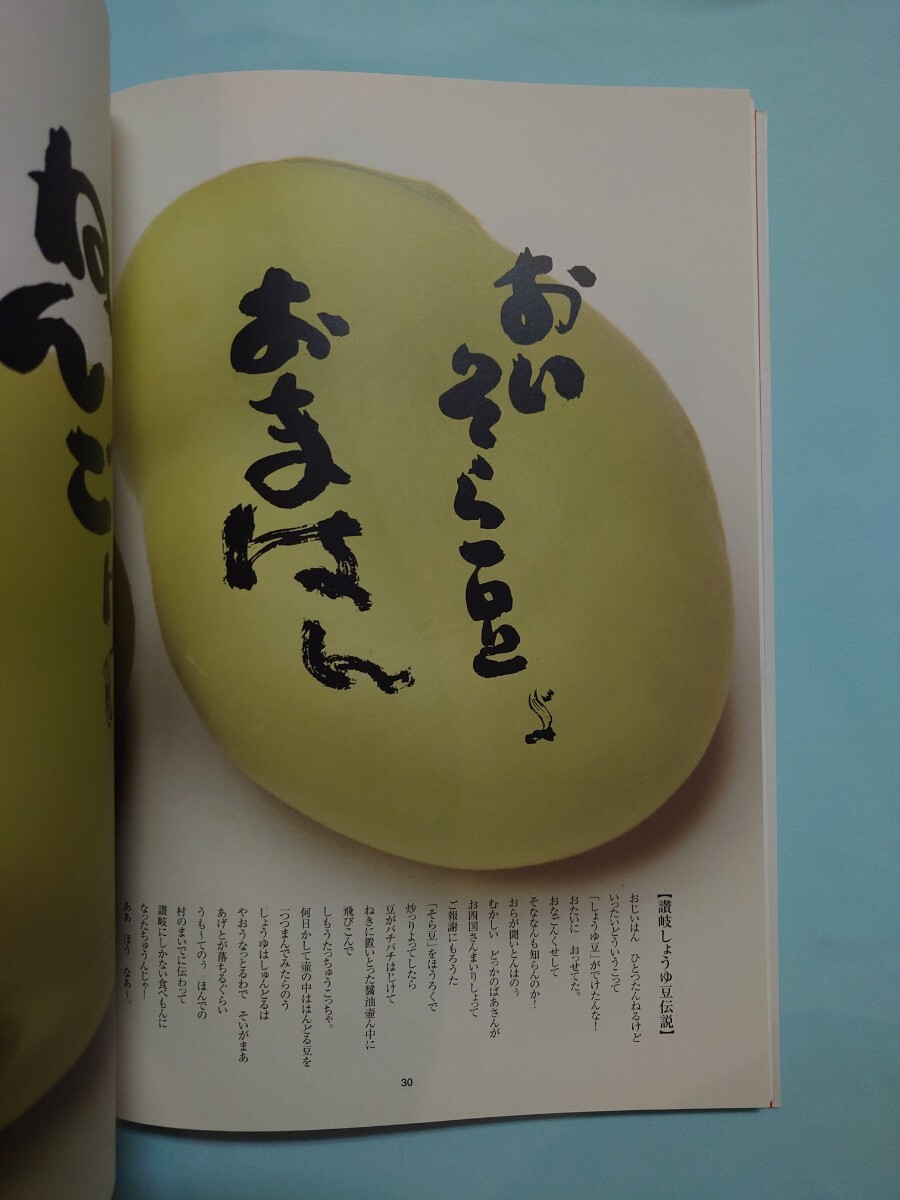 おい
そら豆よ
おまはん
【讃岐しょうゆ豆伝説】
おじいはん　ひとつたんねるけど
いったいどういうこって
「しょうゆ豆」がでけたんな！
おたいに　おっせてた。
おなごんくせして
そななんも知らんのか！
おらが聞いとんはのぅ
むかしい　どっかのばあさんが
お四国さんまいりしょって
ご報謝にもろうた
「そら豆」をほうろくで
炒りよってしたら
豆がパチパチはじけて
ねきに置いとった醤油壷ん中に
飛びこんで
しもうたっちゅうこっちゃ。
何日かして壷の中ははんどる豆を
一つつまんでみたらのう
しょうゆはしゅんどるは
やおうなっとるわで　そいがまあ
あげとが落ちるぐらい
うも〜てのぅ　ほんでの
村のまいでに伝わって
讃岐にしかない食べもんに
なったちゅうんじゃ！
ああ　ほう　なあ〜。
30